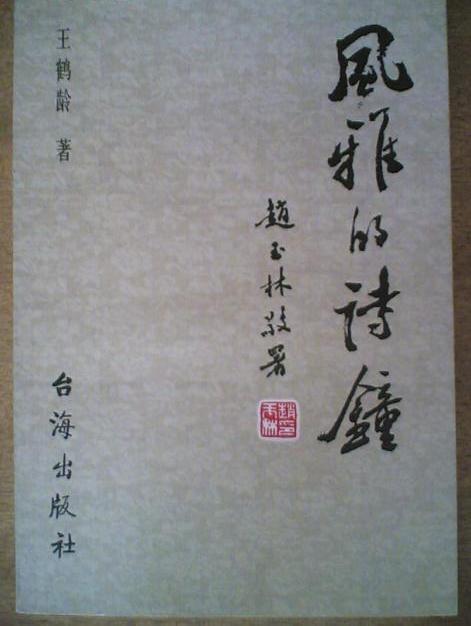 風雅的詩鐘
趙玉林敬署
趙玉林印
王鹤龄 著
台海出版社